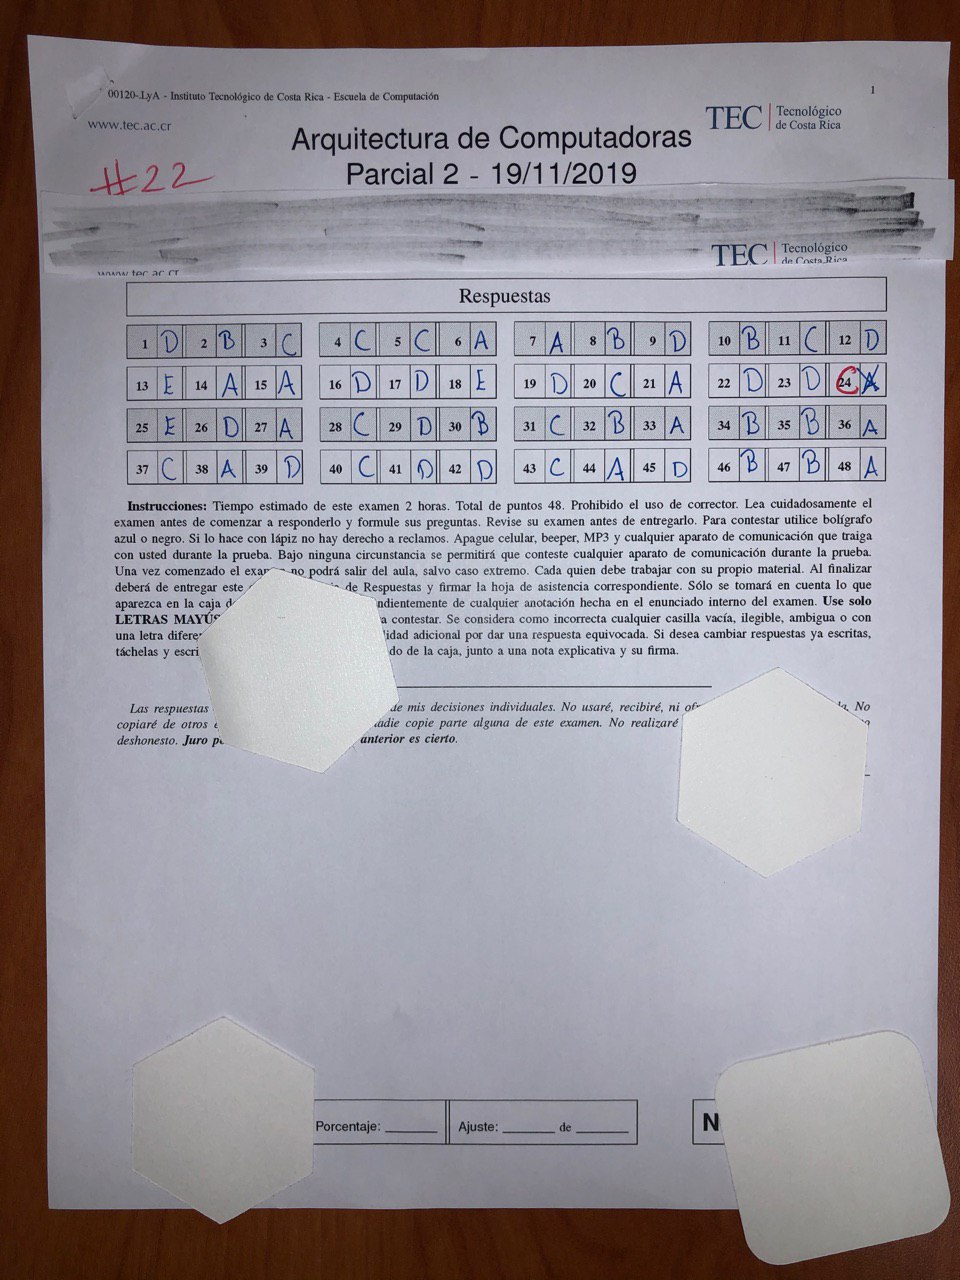 00120-.LyA - Instituto Tecnológico de Costa Rica - Escuela de Computación 1
www.tec.ac.cr
TEC Tecnológico
de Costa Rica
Arquitectura de Computadoras
Parcial 2 - 19/11/2019
#22
TEC Tecnológico
de Costa Rica
www.tec.ac.cr
Respuestas
1 D 2 B 3 C 4 C 5 C 6 A 7 A 8 B 9 D 10 B 11 C 12 D
13 E 14 A 15 A 16 D 17 D 18 E 19 D 20 C 21 A 22 D 23 D 24 C A
25 E 26 D 27 A 28 C 29 D 30 B 31 C 32 B 33 A 34 B 35 B 36 A
37 C 38 A 39 D 40 C 41 D 42 D 43 C 44 A 45 D 46 B 47 B 48 A
Instrucciones: Tiempo estimado de este examen 2 horas. Total de puntos 48. Prohibido el uso de corrector. Lea cuidadosamente el
examen antes de comenzar a responderlo y formule sus preguntas. Revise su examen antes de entregarlo. Para contestar utilice bolígrafo
azul o negro. Si lo hace con lápiz no hay derecho a reclamos. Apague celular, beeper, MP3 y cualquier aparato de comunicación que traiga
con usted durante la prueba. Bajo ninguna circunstancia se permitirá que conteste cualquier aparato de comunicación durante la prueba.
Una vez comenzado el examen no podrá salir del aula, salvo caso extremo. Cada quien debe trabajar con su propio material. Al finalizar
deberá de entregar este de Respuestas y firmar la hoja de asistencia correspondiente. Sólo se tomará en cuenta lo que
aparezca en la caja ndientemente de cualquier anotación hecha en el enunciado interno del examen. Use solo
LETRAS MAYÚS a contestar. Se considera como incorrecta cualquier casilla vacía, ilegible, ambigua o con
una letra diferen lidad adicional por dar una respuesta equivocada. Si desea cambiar respuestas ya escritas,
táchelas y escri do de la caja, junto a una nota explicativa y su firma.
Las respuestas de mis decisiones individuales. No usaré, recibiré, ni No
copiaré de otros nadie copie parte alguna de este examen. No realizaré
deshonesto. Juro anterior es cierto.
Porcentaje: Ajuste: de N